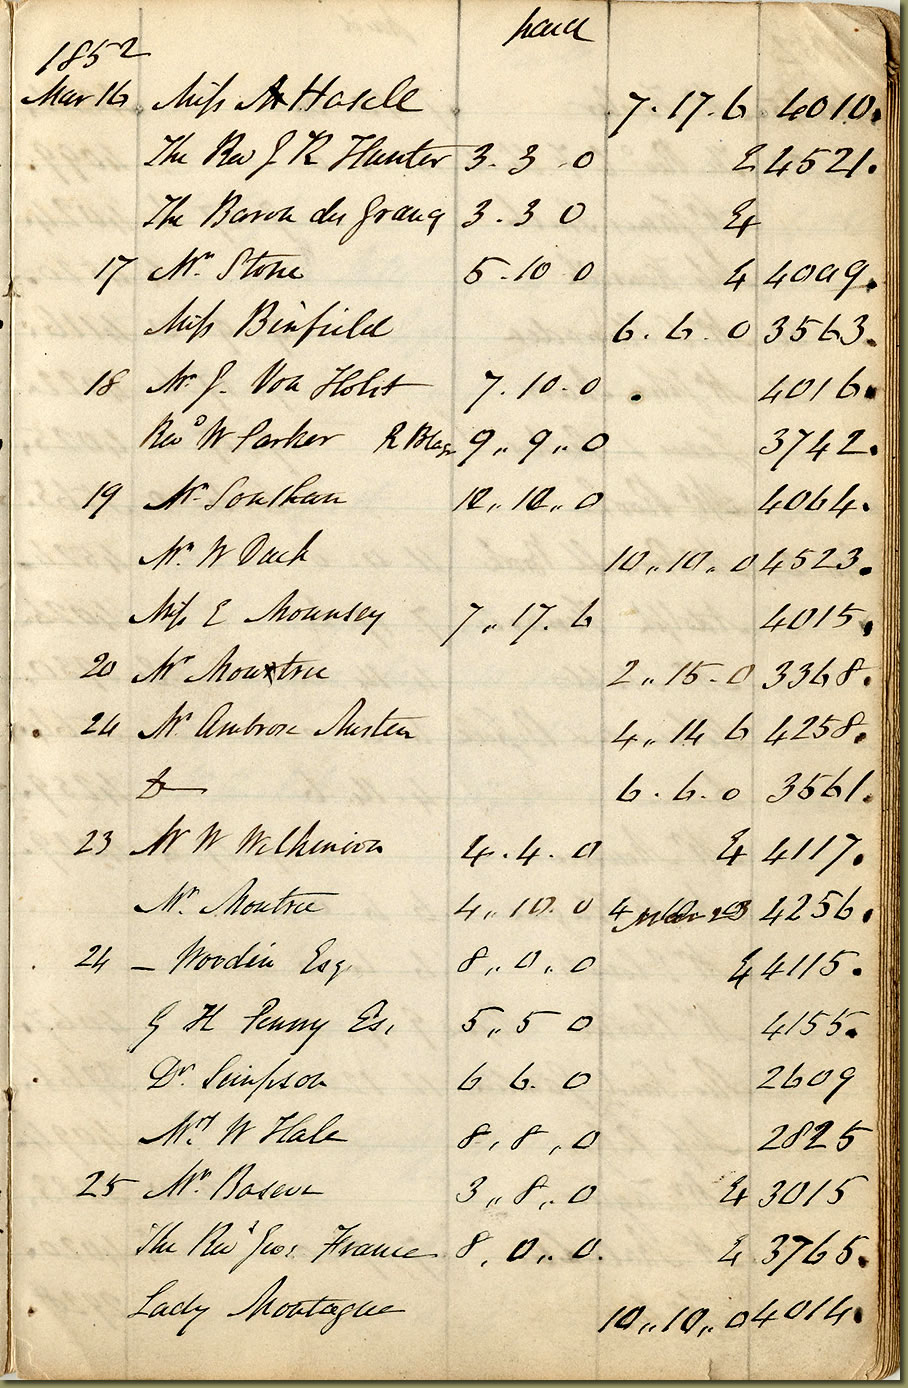 paid
1852
Mar 16 Miss A Hasell 7.17.6 4010.
The Rev J R Hunter 3.3.0 4521.
The Baron des Granq 3.3 0
17 Mr Stone 5.10 0 4 4009.
Miss Binfield 6.6.0 3563.
18 Mr J. Von Holst 7.10.0 4016.
Revd W Parker R 9,,9,,0 3742.
19 Mr 12,,12,,0 4064.
Mr. W Dack 10,,10,,0 4523.
Miss E Mounsey 7,,17.6 4015.
20 Mr Moutrie 2,,15.0 3368.
24 Mr Ambrose Austen 4,,14 6 4258.
Do 6.6.0 3561.
23 Mr W Wilkinson 4.4.0 4117.
Mr. Moutrie 4,,10.0 4256.
24 – Woodin Esq 8,,0,,0 4115.
G H Penny Es, 5,,5 0 4155.
Dr. Simpson 6 6.0 2609
Mrs W Hale 8,8,0 2825
25 Mr. 3,,8,0 3015
The Revd Geo: France 8,0,,0. 3765.
Lady Montague 10,,10,,0 4014.